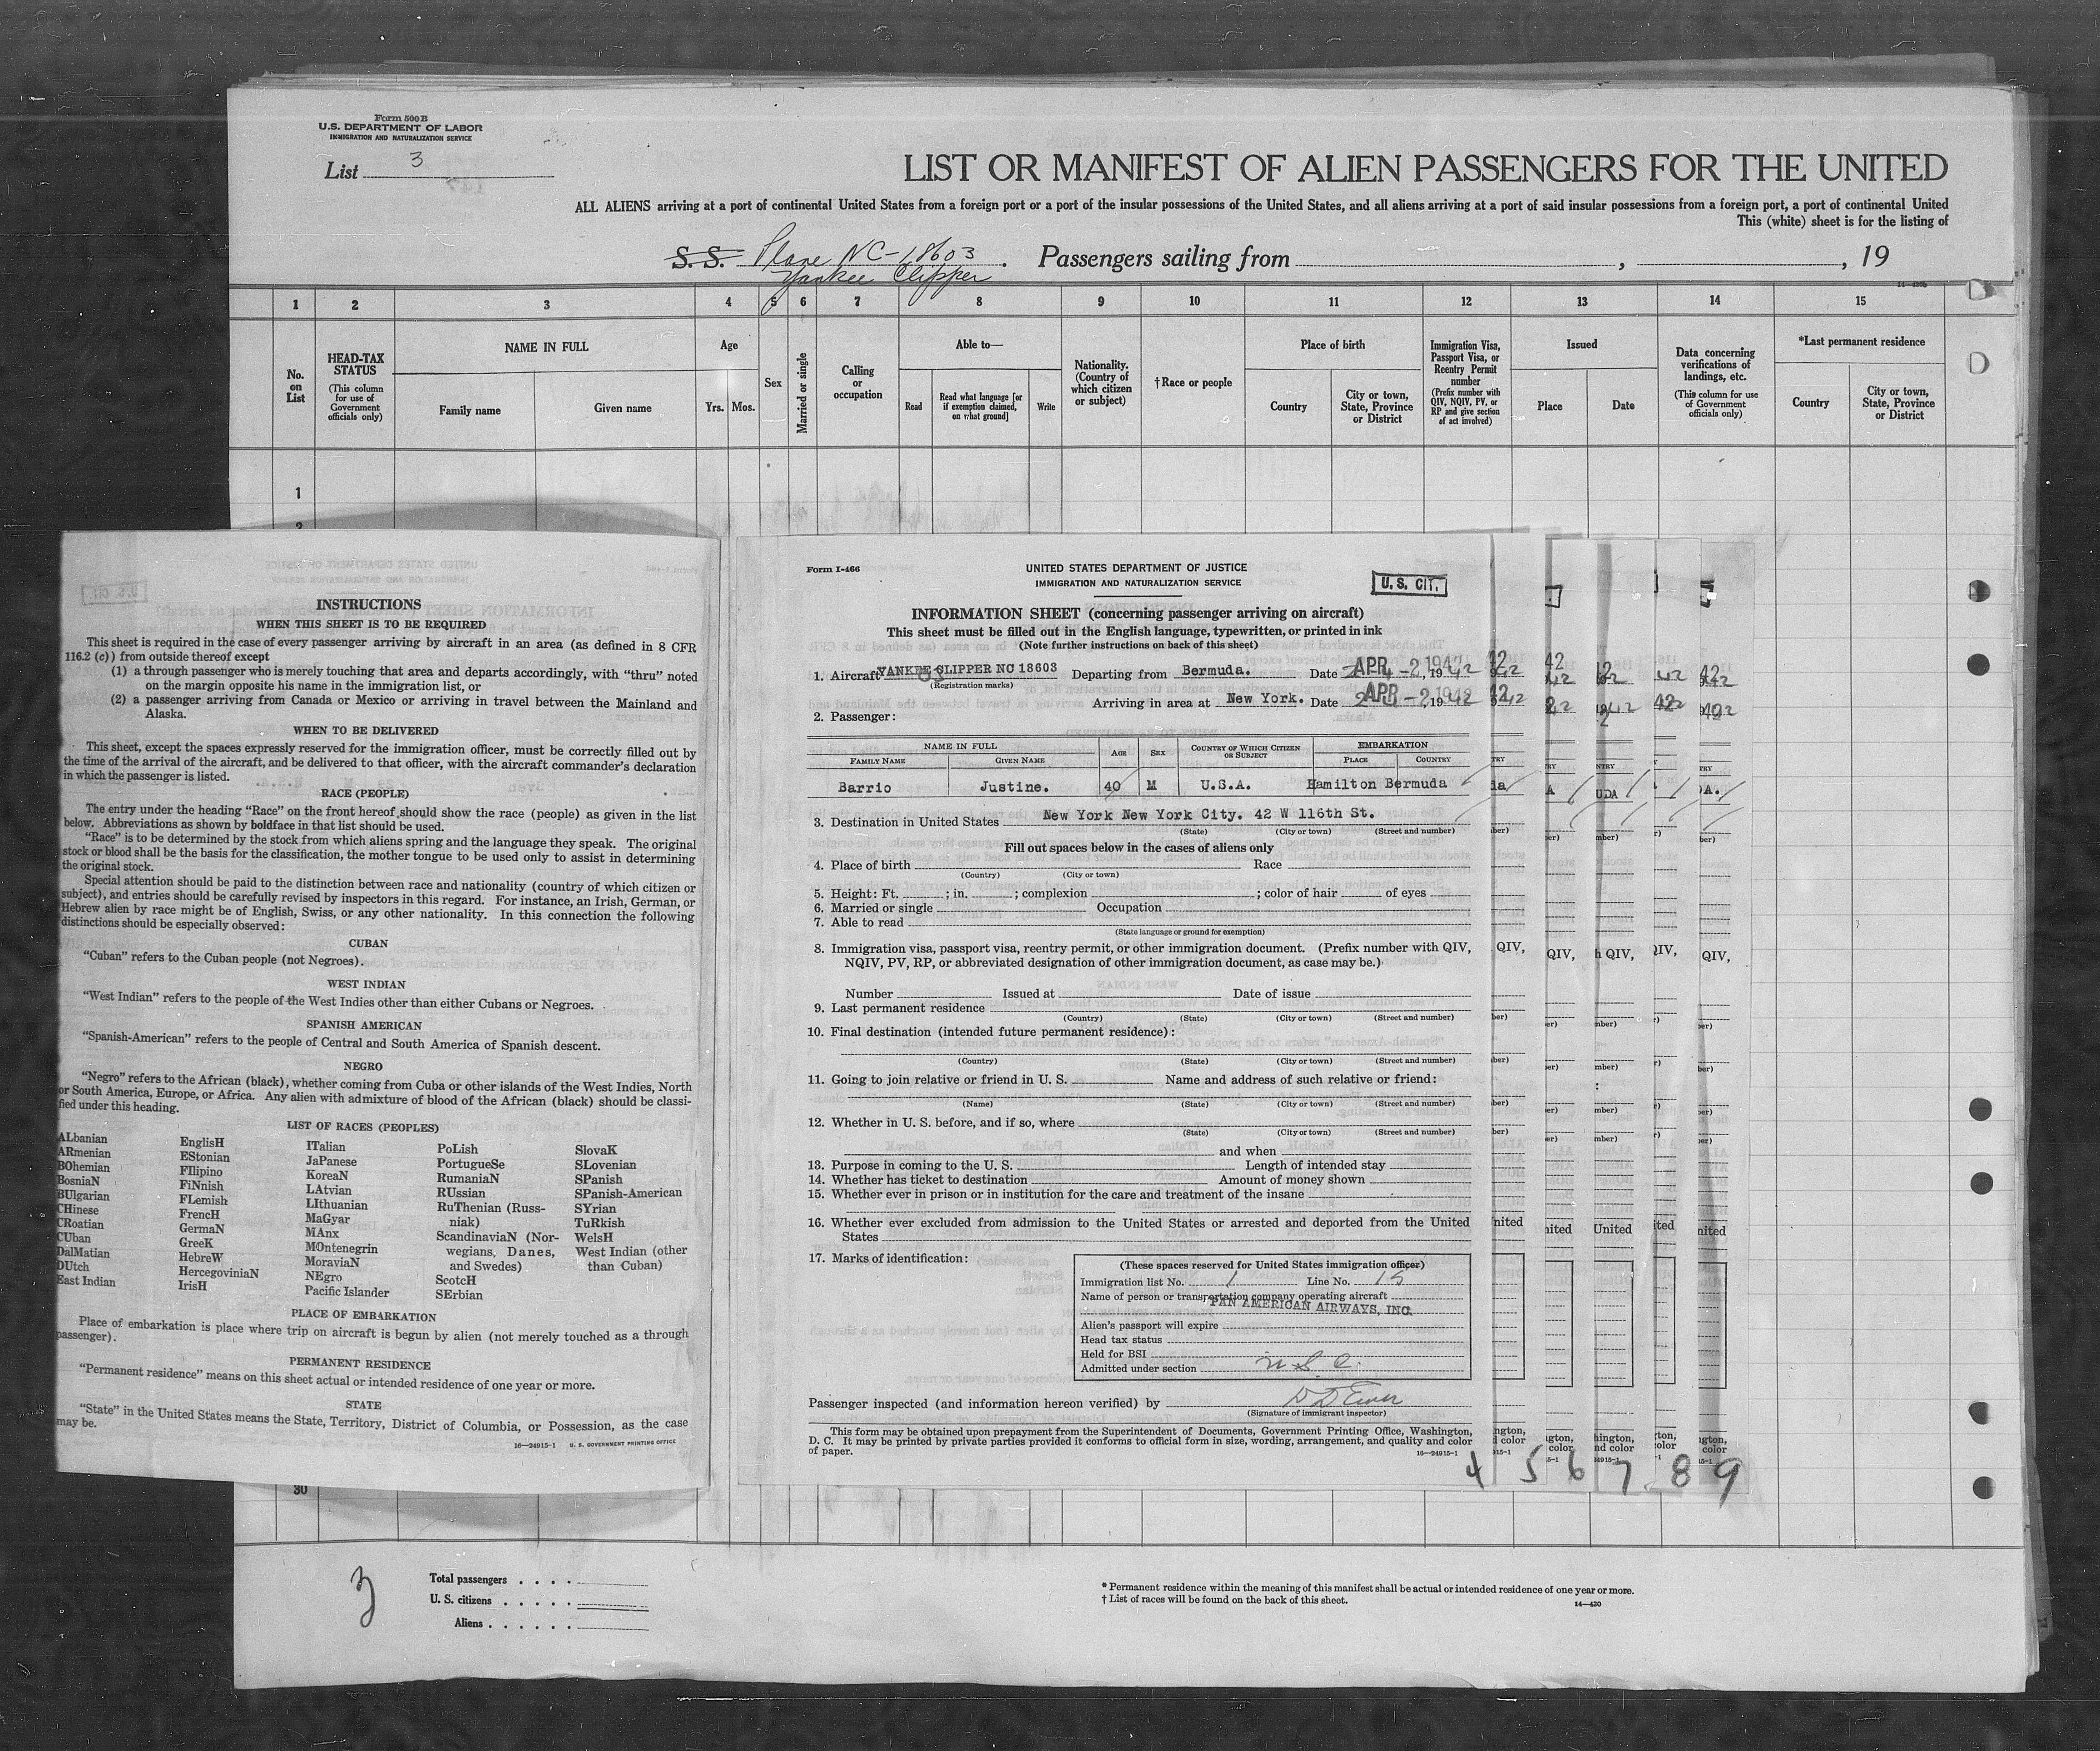 Form 500B
U.S. DEPARTMENT OF LABOR
IMMIGRATION AND NATURALIZATION SERVICE
List 3
LIST OR MANIFEST OF ALIEN PASSENGERS FOR THE UNITED
ALL ALIENS arriving at a port of continental United States from a foreign port or a port of the insular possessions of the United States, and all aliens arriving at a port of said insular possessions from a foreign port, a port of continental United
This (white) sheet is for the listing of
S. S. Plane NC-18603. Passengers sailing from , , 19
Yankee Clipper
1 2 3 4 5 6 7 8 9 10 11 12 13 14 15
No. on List
HEAD-TAX STATUS
(This column for use of Government officials only)
NAME IN FULL
Family name Given name
Age
Yrs. Mos.
Sex
Married or single
Calling or occupation
Able to—
Read
Read what language [or if exemption claimed, on what ground]
Write
Nationality. (Country of which citizen or subject)
†Race or people
Place of birth
Country
City or town, State, Province or District
Immigration Visa, Passport Visa, or Reentry Permit number
(Prefix number with QIV, NQIV, PV, or RP and give section of act involved)
Issued
Place Date
Data concerning verifications of landings, etc.
(This column for use of Government officials only)
*Last permanent residence
Country
City or town, State, Province or District
1
2
INSTRUCTIONS
WHEN THIS SHEET IS TO BE REQUIRED
This sheet is required in the case of every passenger arriving by aircraft in an area (as defined in 8 CFR
116.2 (c)) from outside thereof except
(1) a through passenger who is merely touching that area and departs accordingly, with "thru" noted
on the margin opposite his name in the immigration list, or
(2) a passenger arriving from Canada or Mexico or arriving in travel between the Mainland and
Alaska.
WHEN TO BE DELIVERED
This sheet, except the spaces expressly reserved for the immigration officer, must be correctly filled out by
the time of the arrival of the aircraft, and be delivered to that officer, with the aircraft commander's declaration
in which the passenger is listed.
RACE (PEOPLE)
The entry under the heading "Race" on the front hereof should show the race (people) as given in the list
below. Abbreviations as shown by boldface in that list should be used.
"Race" is to be determined by the stock from which aliens spring and the language they speak. The original
stock or blood shall be the basis for the classification, the mother tongue to be used only to assist in determining
the original stock.
Special attention should be paid to the distinction between race and nationality (country of which citizen or
subject), and entries should be carefully revised by inspectors in this regard. For instance, an Irish, German, or
Hebrew alien by race might be of English, Swiss, or any other nationality. In this connection the following
distinctions should be especially observed:
CUBAN
"Cuban" refers to the Cuban people (not Negroes).
WEST INDIAN
"West Indian" refers to the people of the West Indies other than either Cubans or Negroes.
SPANISH AMERICAN
"Spanish-American" refers to the people of Central and South America of Spanish descent.
NEGRO
"Negro" refers to the African (black), whether coming from Cuba or other islands of the West Indies, North
or South America, Europe, or Africa. Any alien with admixture of blood of the African (black) should be classi-
fied under this heading.
LIST OF RACES (PEOPLES)
ALbanian
ARmenian
BOhemian
BosniaN
BUlgarian
CHinese
CRoatian
CUban
DalMatian
DUtch
East Indian
EnglisH
EStonian
FIlipino
FiNnish
FLemish
FrencH
GermaN
GreeK
HebreW
HercegoviniaN
IrisH
ITalian
JaPanese
KoreaN
LAtvian
LIthuanian
MaGyar
MAnx
MOntenegrin
MoraviaN
NEgro
Pacific Islander
PoLish
PortugueSe
RumaniaN
RUssian
RuThenian (Russ-
niak)
ScandinaviaN (Nor-
wegians, Danes,
and Swedes)
ScotcH
SErbian
SlovaK
SLovenian
SPanish
SPanish-American
SYrian
TuRkish
WelsH
West Indian (other
than Cuban)
PLACE OF EMBARKATION
Place of embarkation is place where trip on aircraft is begun by alien (not merely touched as a through
passenger).
PERMANENT RESIDENCE
"Permanent residence" means on this sheet actual or intended residence of one year or more.
STATE
"State" in the United States means the State, Territory, District of Columbia, or Possession, as the case
may be.
16—24915-1 U. S. GOVERNMENT PRINTING OFFICE
Form I-466
UNITED STATES DEPARTMENT OF JUSTICE
IMMIGRATION AND NATURALIZATION SERVICE
U. S. CIT.
INFORMATION SHEET (concerning passenger arriving on aircraft)
This sheet must be filled out in the English language, typewritten, or printed in ink
(Note further instructions on back of this sheet)
1. Aircraft YANKEE CLIPPER NC 18603 Departing from Bermuda. Date APR -2 1942, 1942
(Registration marks)
Arriving in area at New York. Date APR -2 1942, 1942
2. Passenger:
NAME IN FULL AGE SEX COUNTRY OF WHICH CITIZEN OR SUBJECT EMBARKATION
FAMILY NAME GIVEN NAME PLACE COUNTRY
Barrio Justine. 40 M U.S.A. Hamilton Bermuda
3. Destination in United States New York New York City. 42 W 116th St.
(State) (City or town) (Street and number)
Fill out spaces below in the cases of aliens only
4. Place of birth Race
(Country) (City or town)
5. Height: Ft. ; in. ; complexion ; color of hair of eyes
6. Married or single Occupation
7. Able to read
(State language or ground for exemption)
8. Immigration visa, passport visa, reentry permit, or other immigration document. (Prefix number with QIV,
NQIV, PV, RP, or abbreviated designation of other immigration document, as case may be.)
Number Issued at Date of issue
9. Last permanent residence
(Country) (State) (City or town) (Street and number)
10. Final destination (intended future permanent residence):
(Country) (State) (City or town) (Street and number)
11. Going to join relative or friend in U. S. Name and address of such relative or friend:
(Name) (State) (City or town) (Street and number)
12. Whether in U. S. before, and if so, where
(State) (City or town) (Street and number)
and when
13. Purpose in coming to the U. S. Length of intended stay
14. Whether has ticket to destination Amount of money shown
15. Whether ever in prison or in institution for the care and treatment of the insane
16. Whether ever excluded from admission to the United States or arrested and deported from the United
States
17. Marks of identification:
(These spaces reserved for United States immigration officer)
Immigration list No. 1 Line No. 15
Name of person or transportation company operating aircraft
PAN AMERICAN AIRWAYS, INC.
Alien's passport will expire
Head tax status
Held for BSI
Admitted under section U.S.C.
Passenger inspected (and information hereon verified) by
(Signature of immigrant inspector)
This form may be obtained upon prepayment from the Superintendent of Documents, Government Printing Office, Washington,
D. C. It may be printed by private parties provided it conforms to official form in size, wording, arrangement, and quality and color
of paper. 16—24915-1
4 5 6 7 8 9
30
3
Total passengers . . . .
U. S. citizens . . . . .
Aliens . . . . . .
* Permanent residence within the meaning of this manifest shall be actual or intended residence of one year or more.
† List of races will be found on the back of this sheet.
14—430